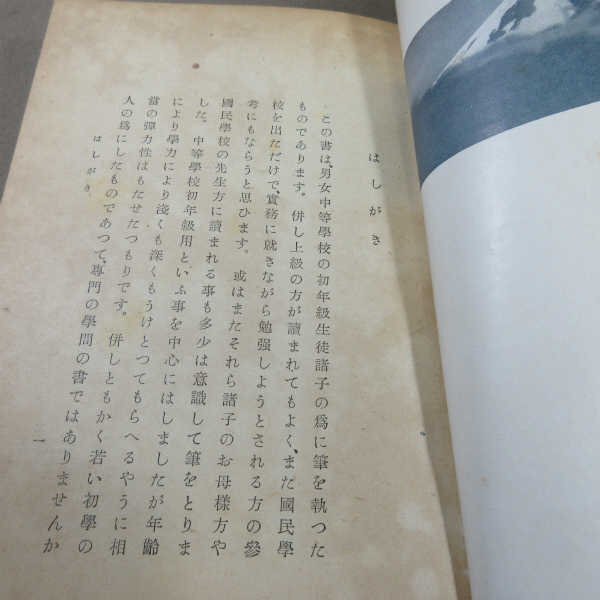 はしがき
この書は、男女中等學校の初年級生徒諸子の爲に筆を執つた
ものであります。併し上級の方が讀まれてもよく、また國民學
校を出ただけで、實務に就きながら勉强しようとされる方の參
考にもならうと思ひます。或はまたそれら諸子のお母樣方や
國民學校の先生方に讀まれる事も多少は意識して筆をとりま
した。中等學校初年級用といふ事を中心にはしましたが年齡
により學力により淺くも深くもうけとつてもらへるやうに相
當の彈力性はもたせたつもりです。併しともかく若い初學の
人の爲にしたものであつて、專門の學問の書ではありませんか
はしがき
一